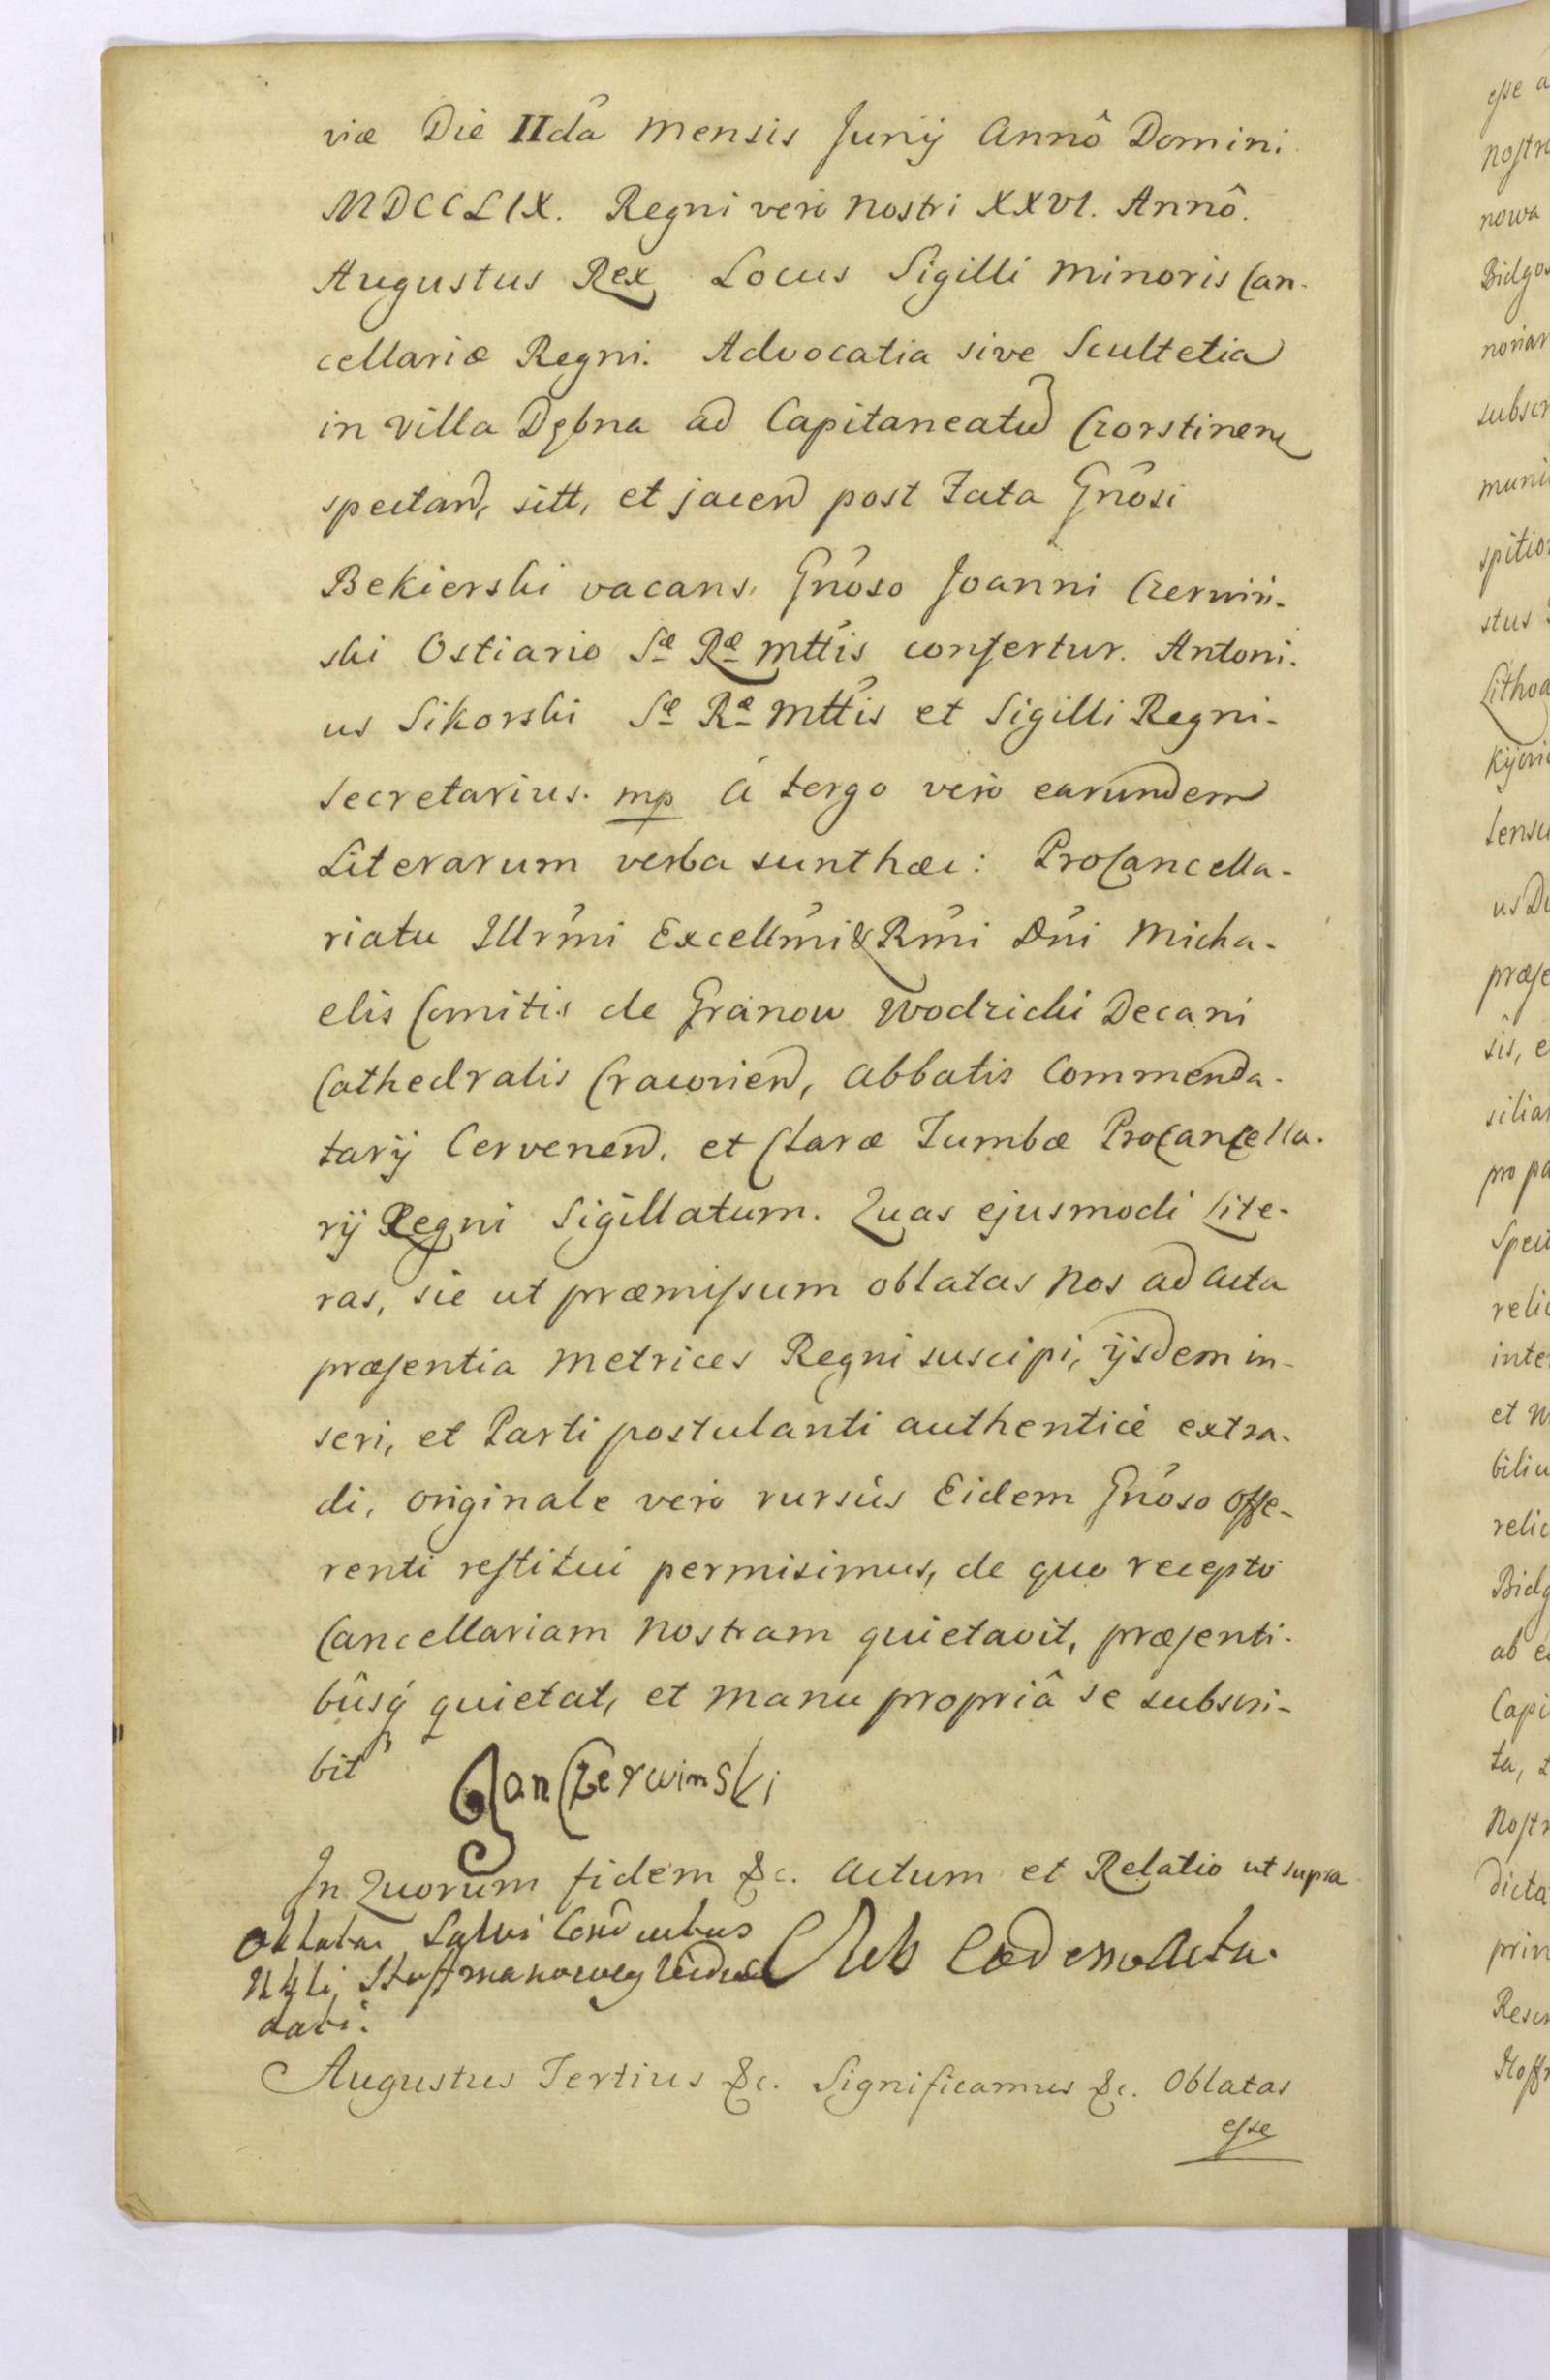 viæ Die IIdâ Mensis Junij Annô Domini
MDCCLIX. Regni verò Nostri XXVI. Annô.
Augustus Rex Locus Sigilli Minoris Can-
cellariæ Regni. Advocatia sive Scultetia
in Villa Dębna ad Capitaneatũ Czorstinen
spectand, sitt, et jacen post Fata Gnosi
Bekierski vacans, Gnoso Joanni Czerwiń-
ski Ostiario Sæ Ræ Mttis confertur. Antoni-
us Sikorski Sæ Ræ Mttis et Sigilli Regni-
Secretarius. mp â tergo verò earundem
Literarum verba sunt hæc: ProCancella-
riatu Illrmi Excellmi & Rmi Dni Micha-
elis Comitis de Granow Wodzicki Decani
Cathedralis Cracovien, Abbatis Commenda-
tarij Cervenen, et Claræ Tumbæ ProCancella-
rij Regni Sigillatum. Quas ejusmodi Lite-
ras, sic ut præmissum oblatas Nos ad Acta
præsentia Metrices Regni suscipi, ijsdem in-
seri, et Parti postulanti authenticè extra-
di, originale verò rursùs Eidem Gnoso Offe-
renti restitui permisimus, de quo receptô
Cancellariam Nostram quietavit, præsenti-
bûsq́ quietat, et manu propriâ se subscri-
bit
Jan Czerwinski
In Quorum fidem &c. Actum et Relatio ut supra
Oblata Salvi Conductus
Sub Eadem Acta.
dati.
Augustus Tertius &c. Significamus &c. Oblatas
esse